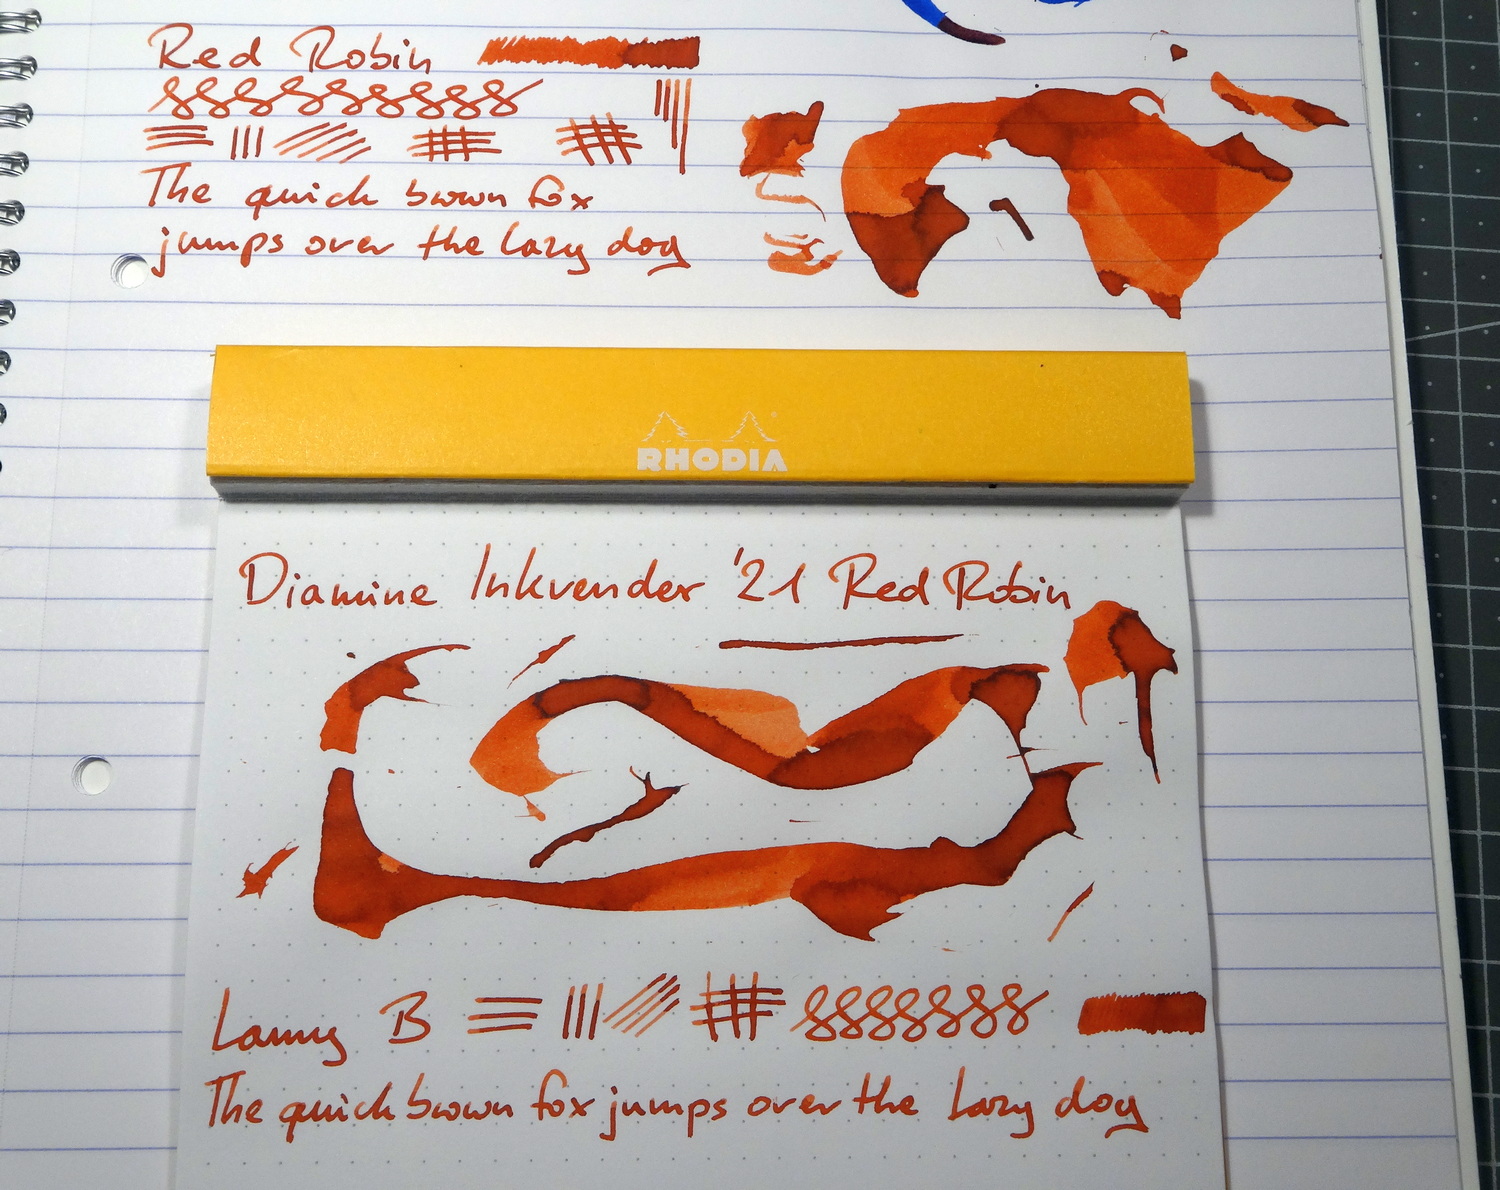 Red Robin
The quick brown fox
jumps over the lazy dog
RHODIA
Diamine Inkvender '21 Red Robin
Lamy B
The quick brown fox jumps over the lazy dog